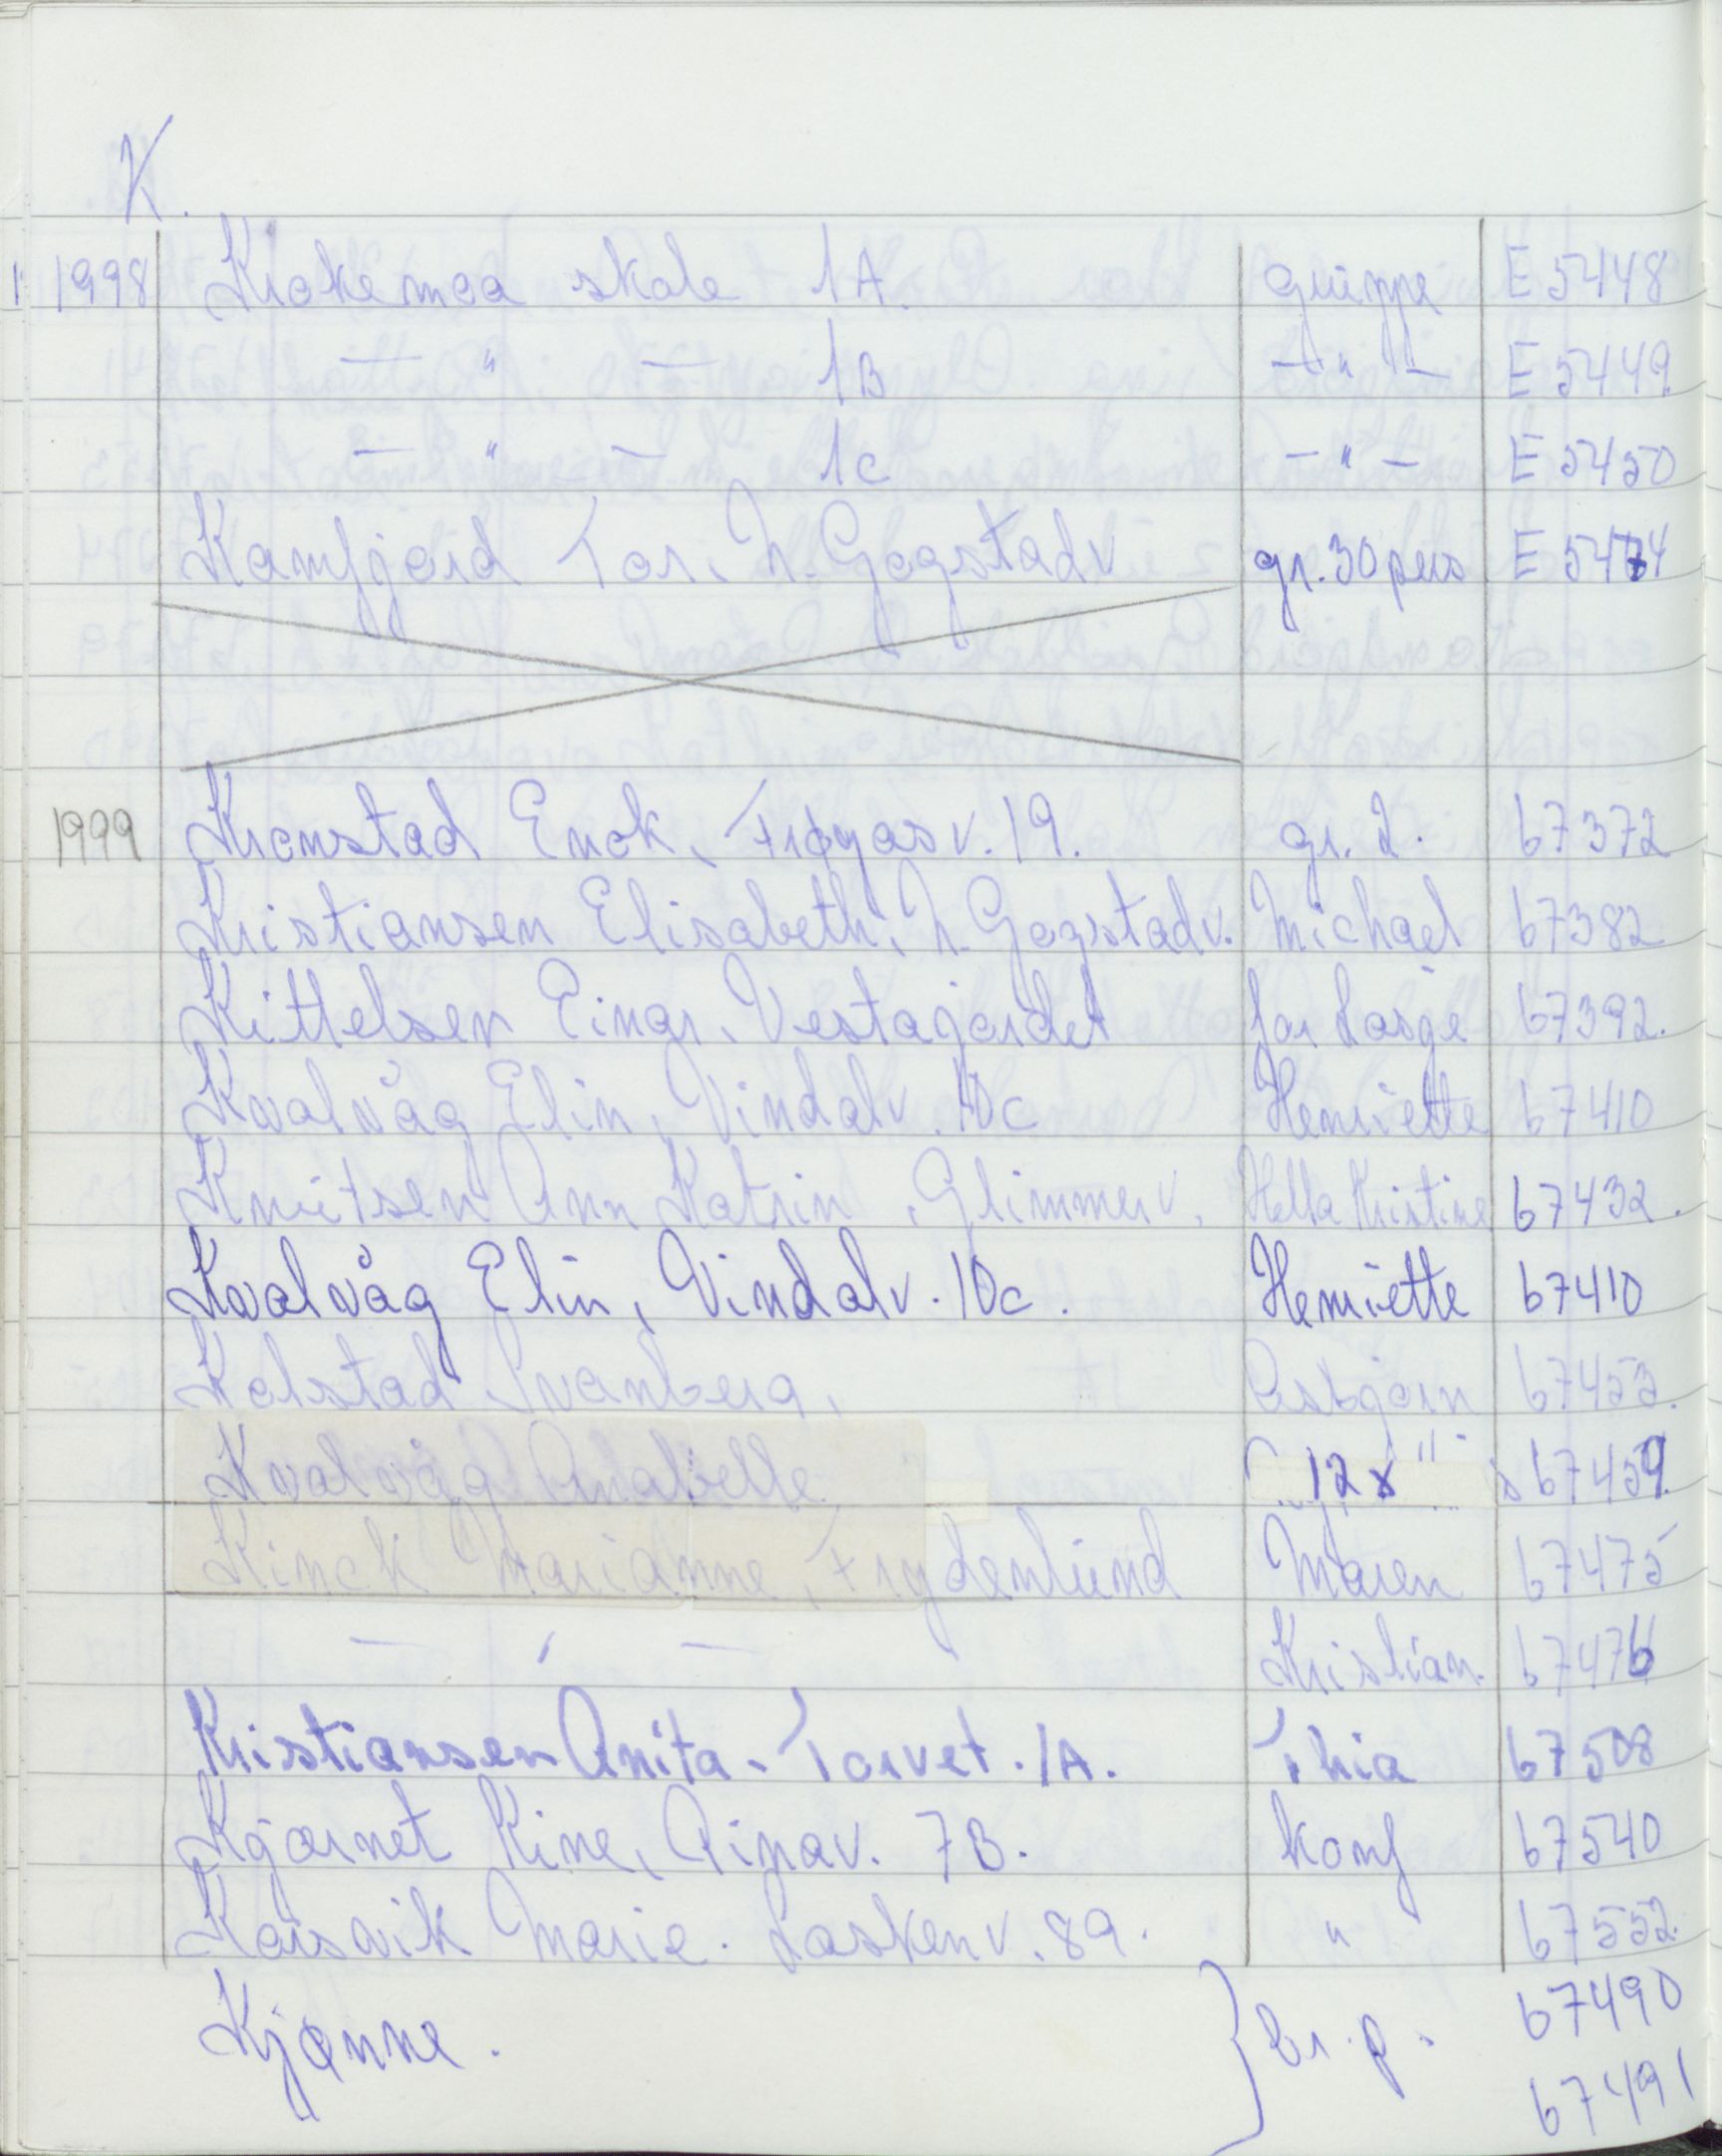 K.
1998 Krokemoa skole 1A. gruppe E 5448
— " — 1B — " — E 5449.
— " — 1C — " — E 5450
Kamfjord Tor, N. Gogstadv gr. 30 pers E 5474
1999 Kronstad Enok, Frøyas v. 19. gr. 2. 67372
Kristiansen Elisabeth, N. Gogstadv. Michael 67382
Kittelsen Einar, Vestagjordet 67392.
Kvalvåg Elin, Vindalv. 10c Henriette 67410
Knutsen Ann Katrin, Glimmerv. Hella Kristine 67432.
Kvalvåg Elin, Vindalv. 10c. Henriette 67410
Kolstad Svanberg, Asbjørn 67453.
Kvalvåg Anabelle "12x" 67459.
Kinck Marianne, Frydenlund Maren 67475
— " — Kristian. 67476
Kristiansen Anita. Torvet. 1A. Thia 67508
Kjærnet Kine, Ainav. 7B. konf 67540
Korsvik Marie. Laskenv. 89. " 67552.
Kjønne. } br. p. 67490
67491